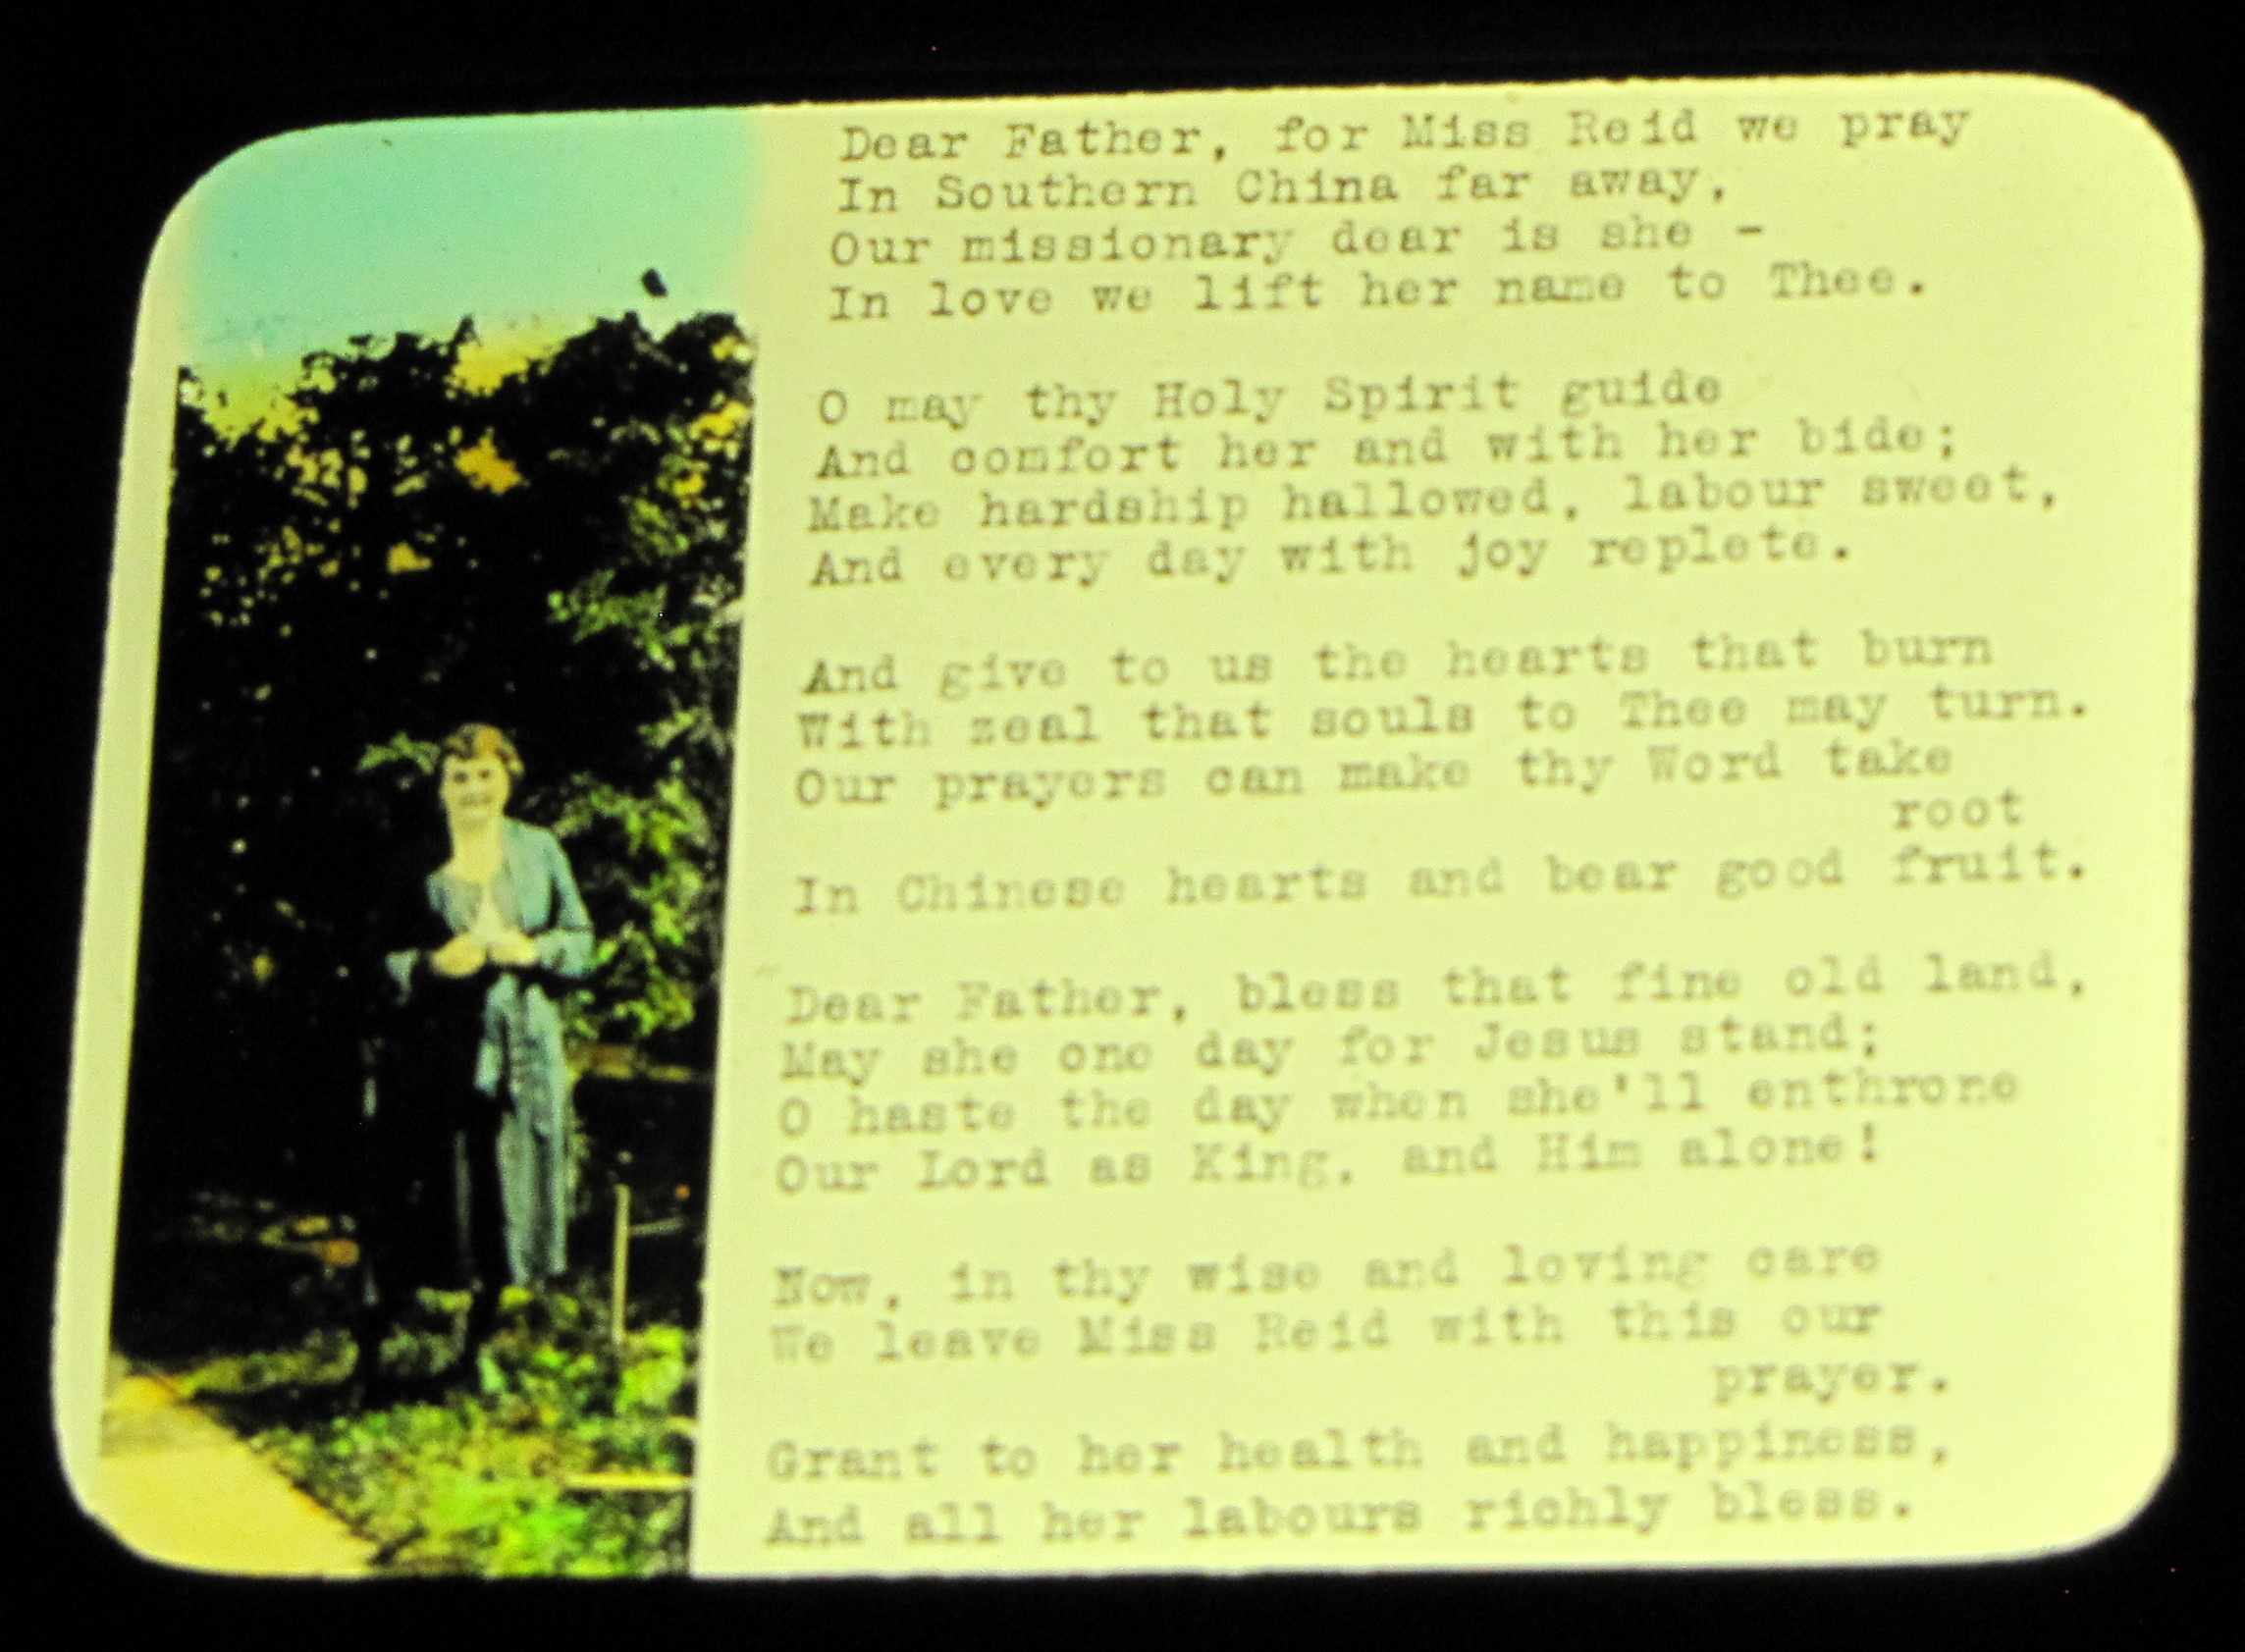 Dear Father, for Miss Reid we pray
In Southern China far away,
Our missionary dear is she -
In love we lift her name to Thee.
O may thy Holy Spirit guide
And comfort her and with her bide;
Make hardship hallowed, labour sweet,
And every day with joy replete.
And give to us the hearts that burn
With zeal that souls to Thee may turn.
Our prayers can make thy Word take
root
In Chinese hearts and bear good fruit.
Dear Father, bless that fine old land,
May she one day for Jesus stand;
O haste the day when she'll enthrone
Our Lord as King, and Him alone!
Now, in thy wise and loving care
We leave Miss Reid with this our
prayer.
Grant to her health and happiness,
And all her labours richly bless.